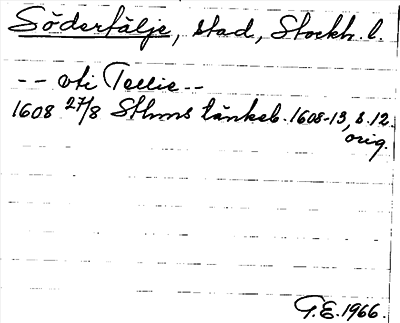 Södertälje, stad, Stockh. l.
-- uti Tellie --
1608 27/8 Sthms tänkeb. 1608-13, s. 12.
orig.
T.E. 1966.